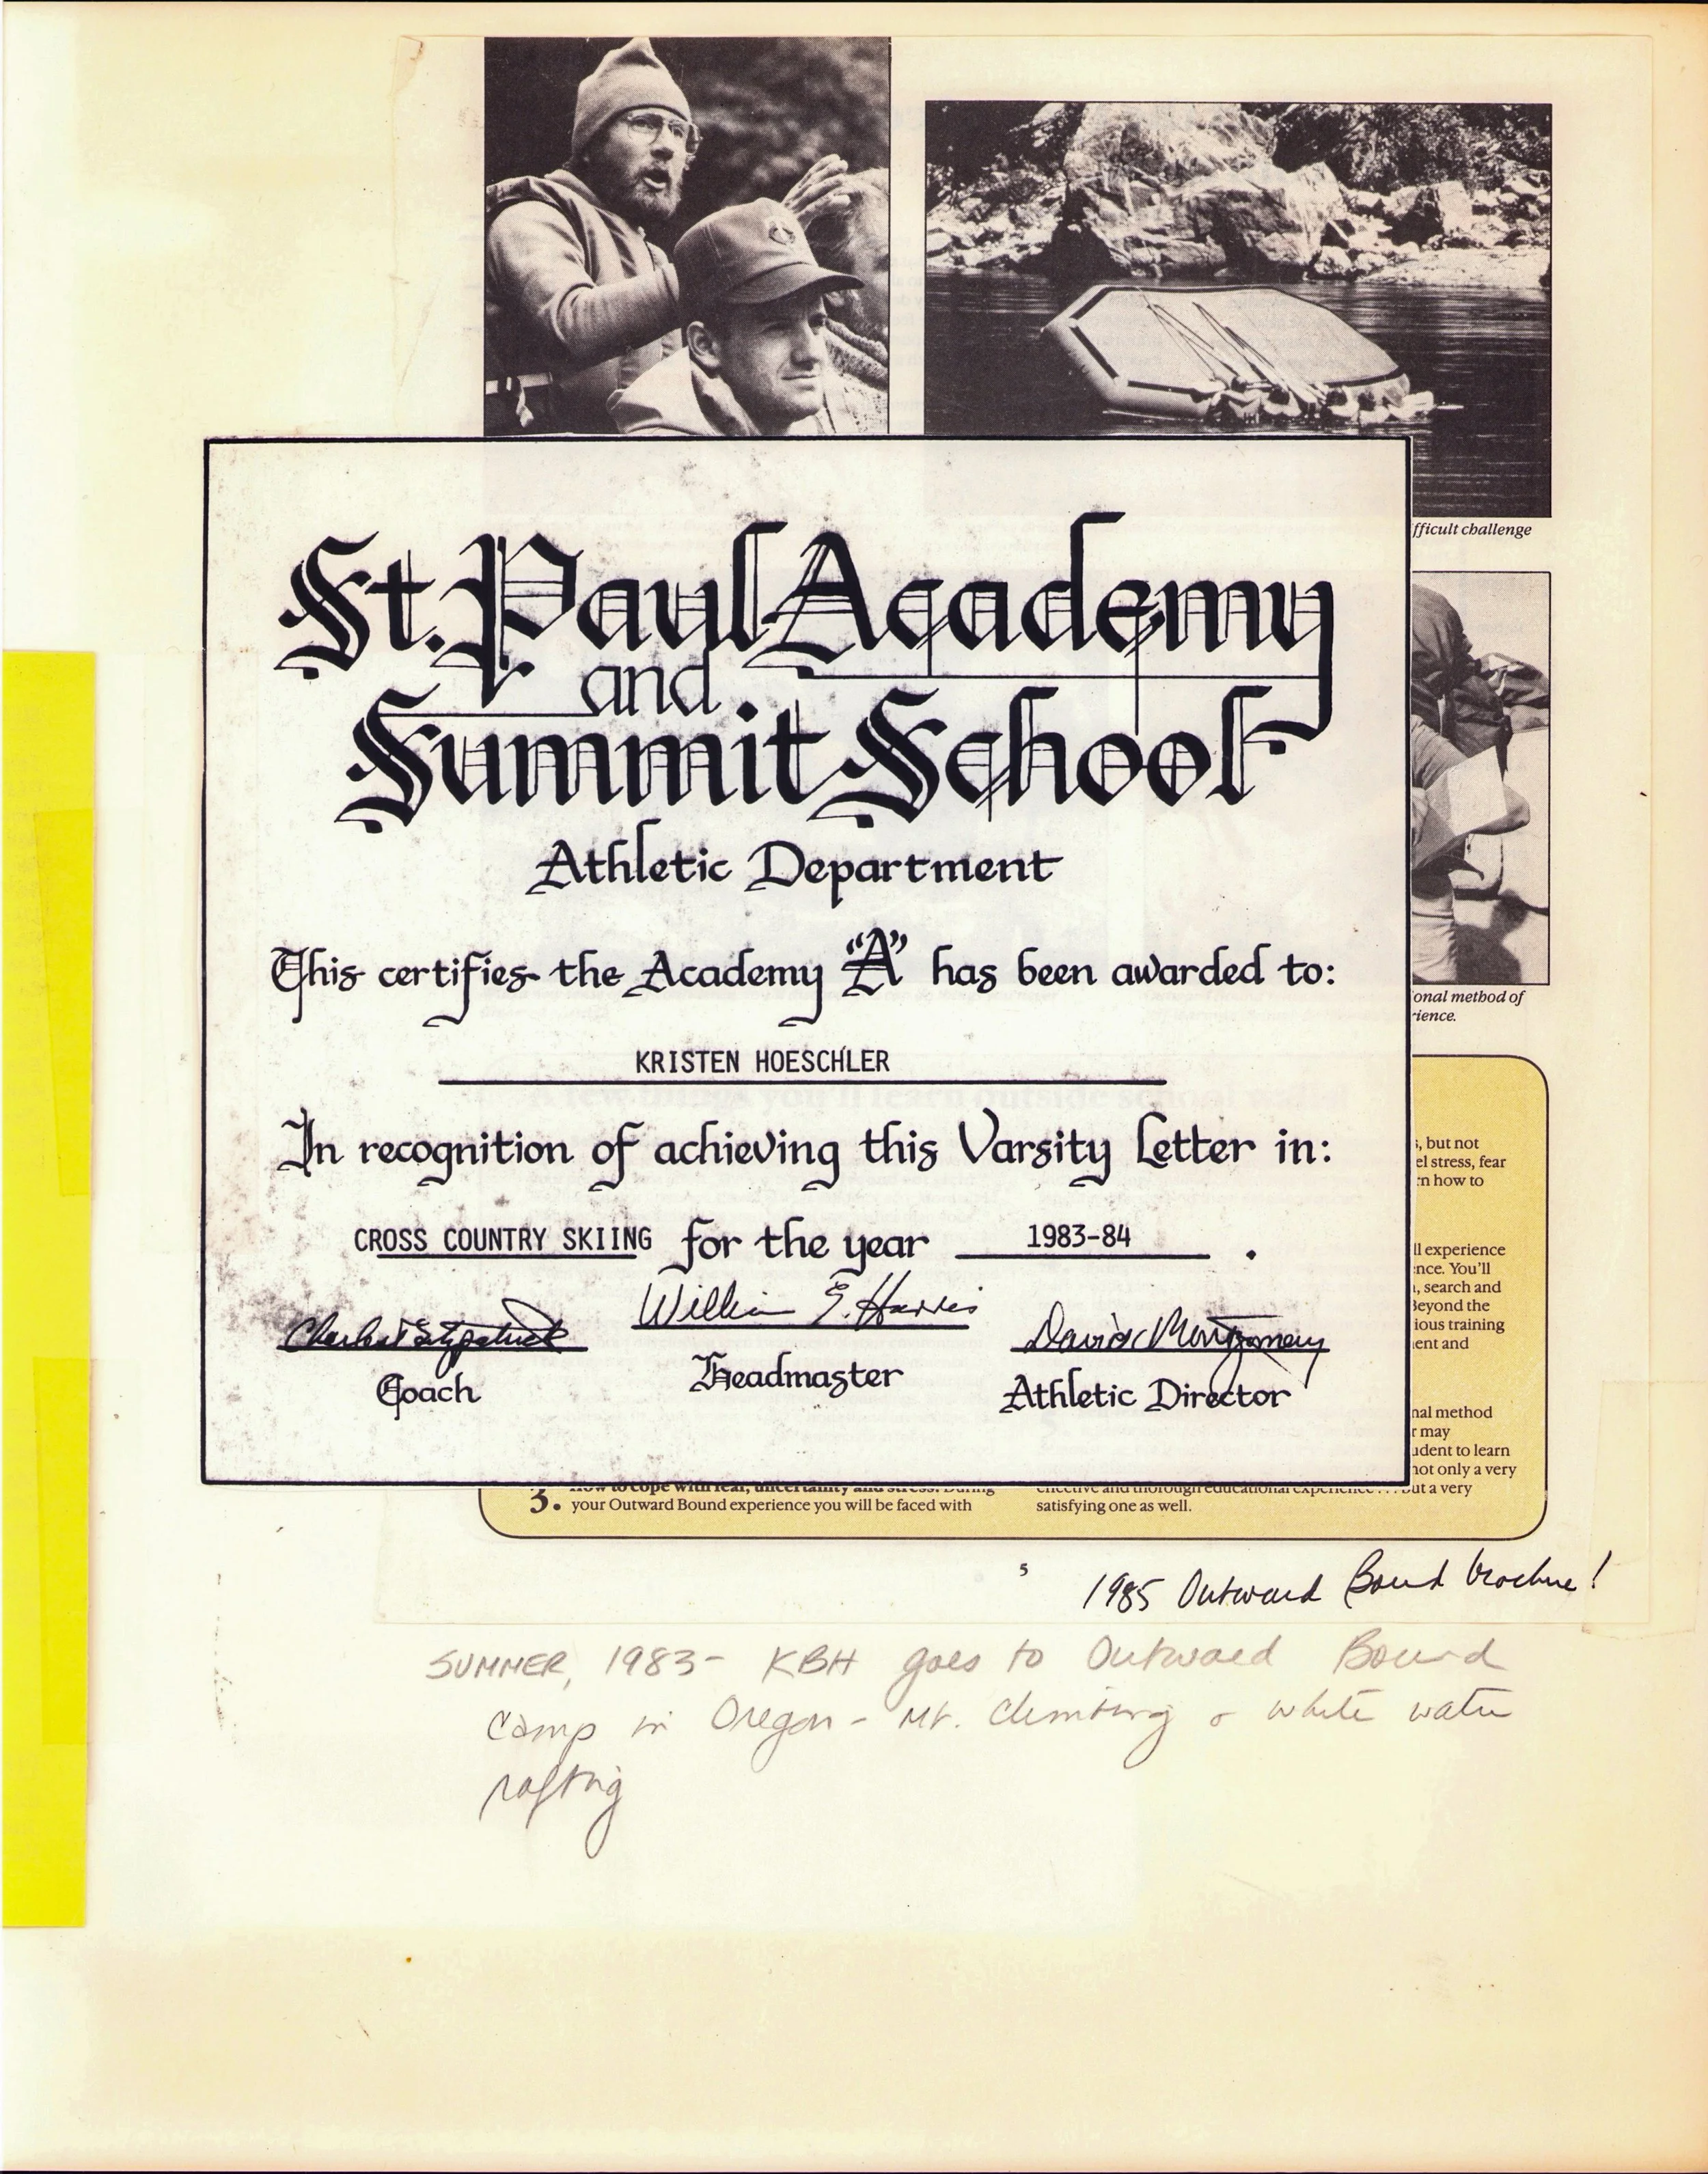 fficult challenge
St. Paul Academy
and
Summit School
Athletic Department
This certifies the Academy "A" has been awarded to:
KRISTEN HOESCHLER
In recognition of achieving this Varsity Letter in:
CROSS COUNTRY SKIING for the year 1983-84 .
Charles Fitzpatrick
William E. Harris
David Montgomery
Coach
Headmaster
Athletic Director
onal method of
rience.
s, but not
el stress, fear
rn how to
ll experience
nce. You'll
, search and
Beyond the
ious training
ent and
nal method
r may
udent to learn
not only a very
3. How to cope with fear, uncertainty and stress. During
your Outward Bound experience you will be faced with
effective and thorough educational experience . . . but a very
satisfying one as well.
5
1985 Outward Bound brochure!
SUMMER, 1983- KBH goes to Outward Bound
Camp in Oregon - Mt. Climbing & white water
rafting